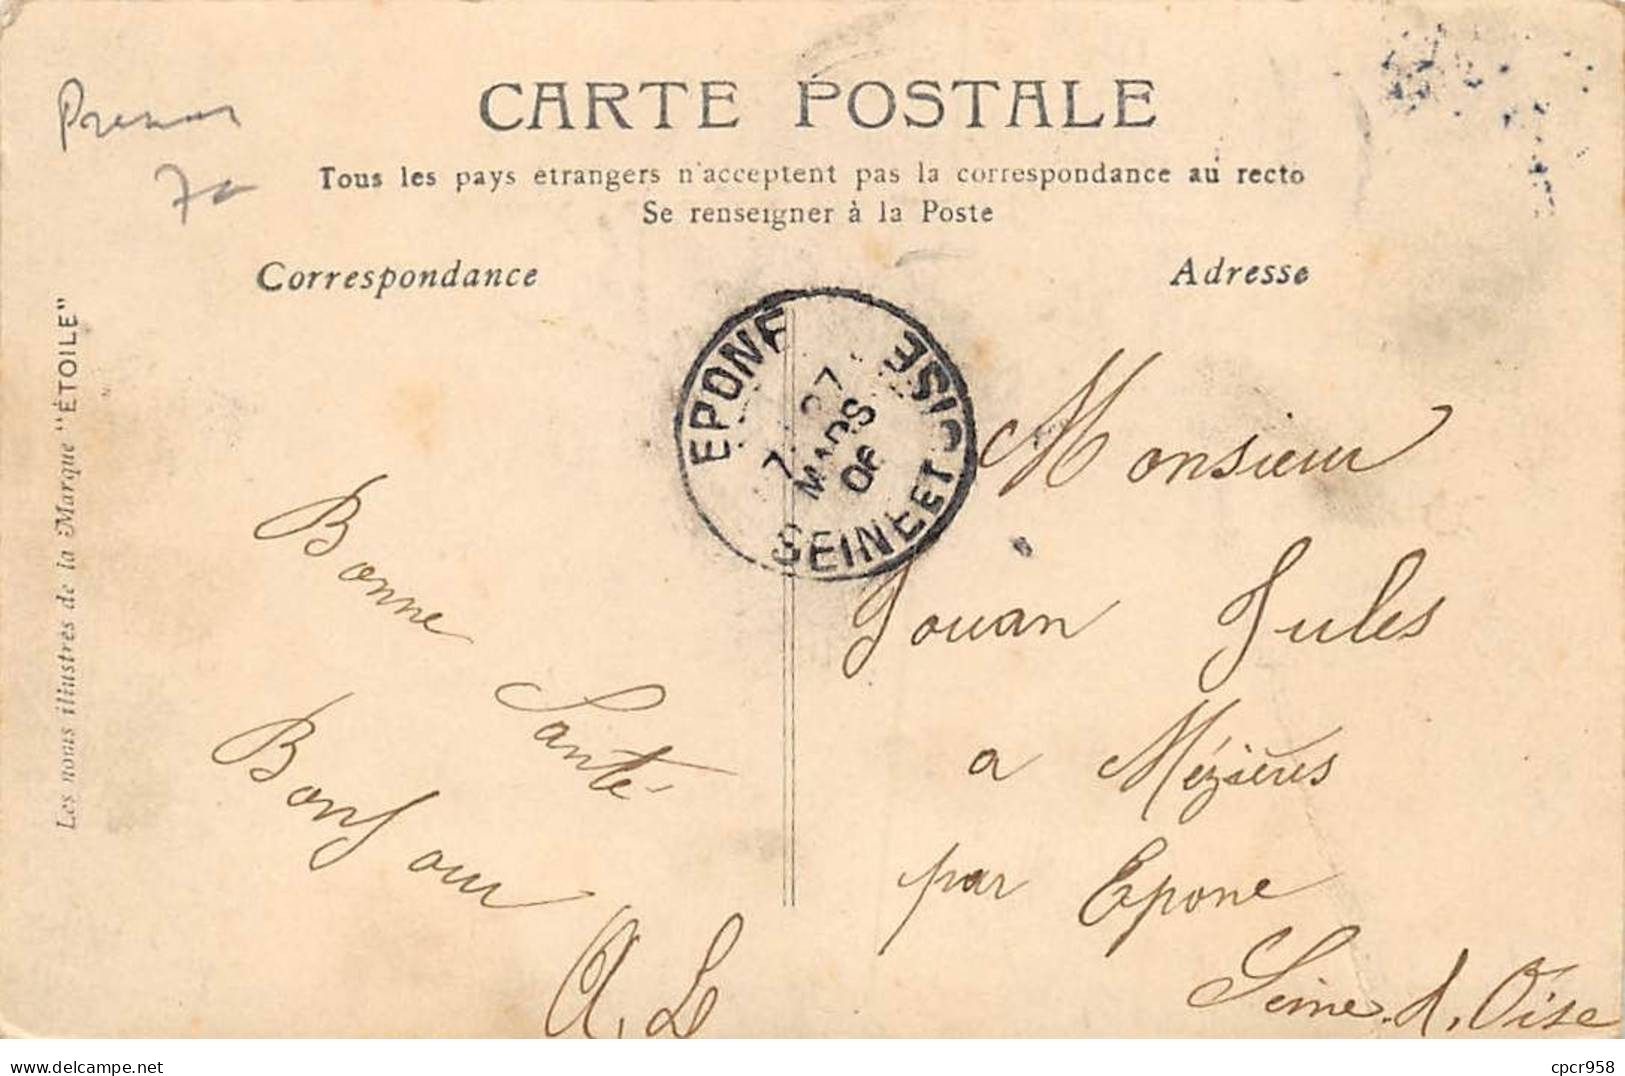 CARTE POSTALE
Tous les pays étrangers n'acceptent pas la correspondance au recto
Se renseigner à la Poste
Correspondance
Adresse
Les noms illustres de la Marque "ÉTOILE"
70
EPONE
SEINE ET OISE
7
27
MARS
06
Bonne
Santé
Bonjour
A. L
Monsieur
Jouan Jules
a Mézières
par Epone
Seine. &. Oise
delcampe.net
cpcr958